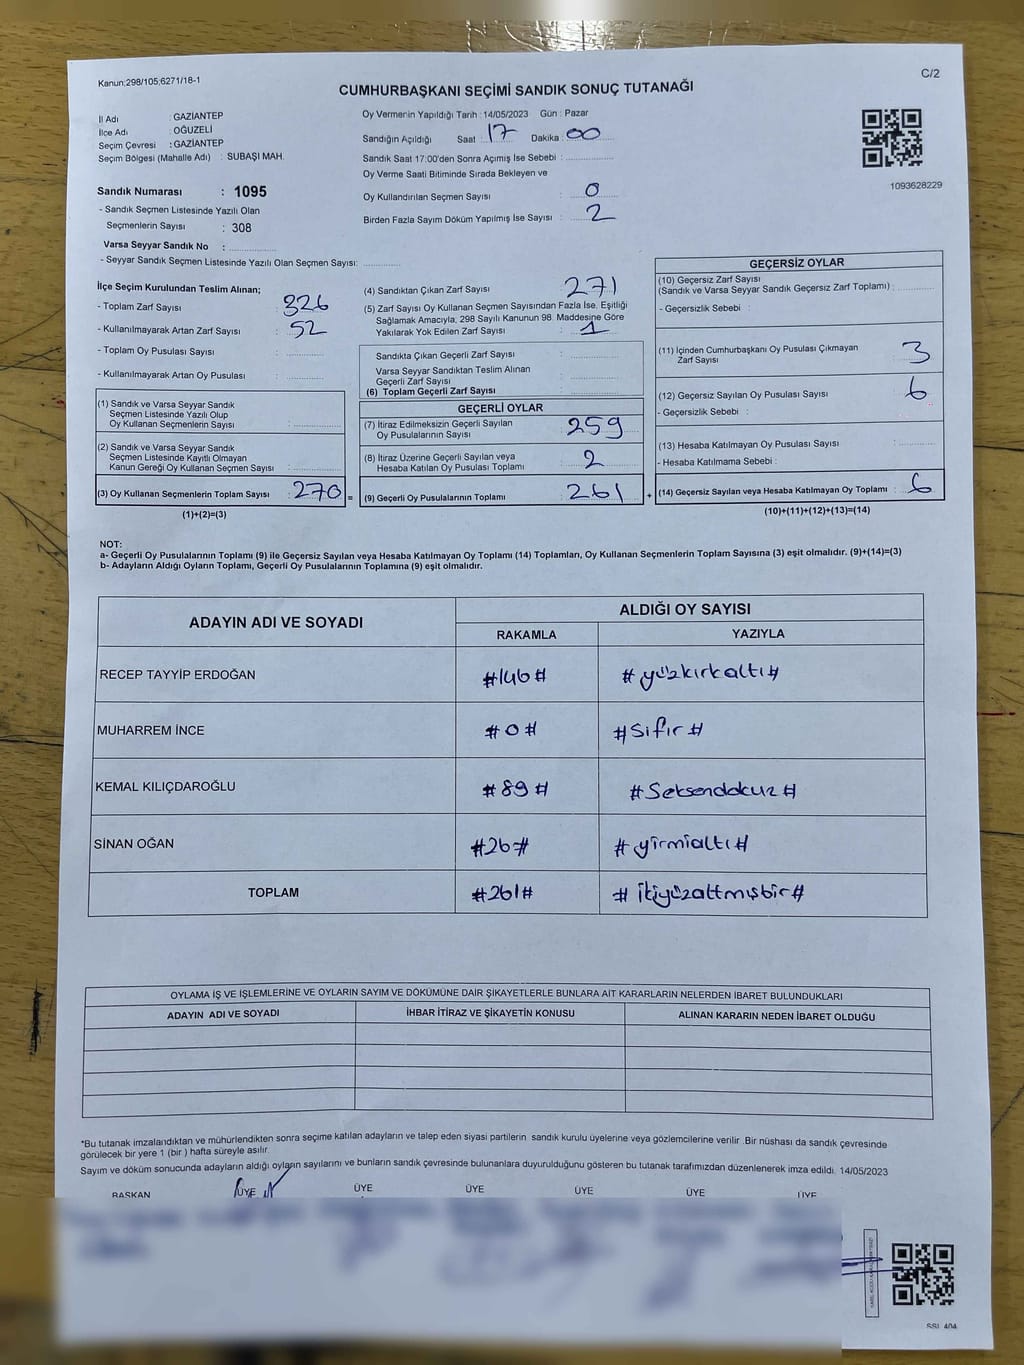 Kanun;298/105;6271/18-1
C/2
CUMHURBAŞKANI SEÇİMİ SANDIK SONUÇ TUTANAĞI
İl Adı : GAZİANTEP
İlçe Adı : OĞUZELİ
Seçim Çevresi : GAZİANTEP
Seçim Bölgesi (Mahalle Adı) : SUBAŞI MAH.
Sandık Numarası : 1095
- Sandık Seçmen Listesinde Yazılı Olan
Seçmenlerin Sayısı : 308
Varsa Seyyar Sandık No :
- Seyyar Sandık Seçmen Listesinde Yazılı Olan Seçmen Sayısı:
Oy Vermenin Yapıldığı Tarih : 14/05/2023 Gün : Pazar
Sandığın Açıldığı Saat : 17 Dakika : 00
Sandık Saat 17:00'den Sonra Açımış İse Sebebi :
Oy Verme Saati Bitiminde Sırada Bekleyen ve
Oy Kullandırılan Seçmen Sayısı : 0
Birden Fazla Sayım Döküm Yapılmış İse Sayısı : 2
1093628229
İlçe Seçim Kurulundan Teslim Alınan;
- Toplam Zarf Sayısı : 326
- Kullanılmayarak Artan Zarf Sayısı : 52
- Toplam Oy Pusulası Sayısı :
- Kullanılmayarak Artan Oy Pusulası :
(1) Sandık ve Varsa Seyyar Sandık
Seçmen Listesinde Yazılı Olup
Oy Kullanan Seçmenlerin Sayısı :
(2) Sandık ve Varsa Seyyar Sandık
Seçmen Listesinde Kayıtlı Olmayan
Kanun Gereği Oy Kullanan Seçmen Sayısı :
(3) Oy Kullanan Seçmenlerin Toplam Sayısı : 270 =
(1)+(2)=(3)
(4) Sandıktan Çıkan Zarf Sayısı : 271
(5) Zarf Sayısı Oy Kullanan Seçmen Sayısından Fazla İse, Eşitliği
Sağlamak Amacıyla, 298 Sayılı Kanunun 98. Maddesine Göre
Yakılarak Yok Edilen Zarf Sayısı : 1
Sandıkta Çıkan Geçerli Zarf Sayısı :
Varsa Seyyar Sandıktan Teslim Alınan
Geçerli Zarf Sayısı :
(6) Toplam Geçerli Zarf Sayısı :
GEÇERLİ OYLAR
(7) İtiraz Edilmeksizin Geçerli Sayılan
Oy Pusulalarının Sayısı : 259
(8) İtiraz Üzerine Geçerli Sayılan veya
Hesaba Katılan Oy Pusulası Toplamı : 2
(9) Geçerli Oy Pusulalarının Toplamı : 261 +
GEÇERSİZ OYLAR
(10) Geçersiz Zarf Sayısı
(Sandık ve Varsa Seyyar Sandık Geçersiz Zarf Toplamı) :
- Geçersizlik Sebebi :
(11) İçinden Cumhurbaşkanı Oy Pusulası Çıkmayan
Zarf Sayısı : 3
(12) Geçersiz Sayılan Oy Pusulası Sayısı : 6
- Geçersizlik Sebebi :
(13) Hesaba Katılmayan Oy Pusulası Sayısı :
- Hesaba Katılmama Sebebi :
(14) Geçersiz Sayılan veya Hesaba Katılmayan Oy Toplamı : 6
(10)+(11)+(12)+(13)=(14)
NOT:
a- Geçerli Oy Pusulalarının Toplamı (9) ile Geçersiz Sayılan veya Hesaba Katılmayan Oy Toplamı (14) Toplamları, Oy Kullanan Seçmenlerin Toplam Sayısına (3) eşit olmalıdır. (9)+(14)=(3)
b- Adayların Aldığı Oyların Toplamı, Geçerli Oy Pusulalarının Toplamına (9) eşit olmalıdır.
ADAYIN ADI VE SOYADI ALDIĞI OY SAYISI
RAKAMLA YAZIYLA
RECEP TAYYİP ERDOĞAN #146# #yüzkırkaltı#
MUHARREM İNCE #0# #Sıfır#
KEMAL KILIÇDAROĞLU #89# #Seksendokuz#
SİNAN OĞAN #26# #yirmialtı#
TOPLAM #261# #ikiyüzaltmışbir#
OYLAMA İŞ VE İŞLEMLERİNE VE OYLARIN SAYIM VE DÖKÜMÜNE DAİR ŞİKAYETLERLE BUNLARA AİT KARARLARIN NELERDEN İBARET BULUNDUKLARI
ADAYIN ADI VE SOYADI İHBAR İTİRAZ VE ŞİKAYETİN KONUSU ALINAN KARARIN NEDEN İBARET OLDUĞU
*Bu tutanak imzalandıktan ve mühürlendikten sonra seçime katılan adayların ve talep eden siyasi partilerin sandık kurulu üyelerine veya gözlemcilerine verilir. Bir nüshası da sandık çevresinde
görülecek bir yere 1 (bir) hafta süreyle asılır.
Sayım ve döküm sonucunda adayların aldığı oyların sayılarını ve bunların sandık çevresinde bulunanlara duyurulduğunu gösteren bu tutanak tarafımızdan düzenlenerek imza edildi. 14/05/2023
BAŞKAN ÜYE ÜYE ÜYE ÜYE ÜYE ÜYE
SSL 404